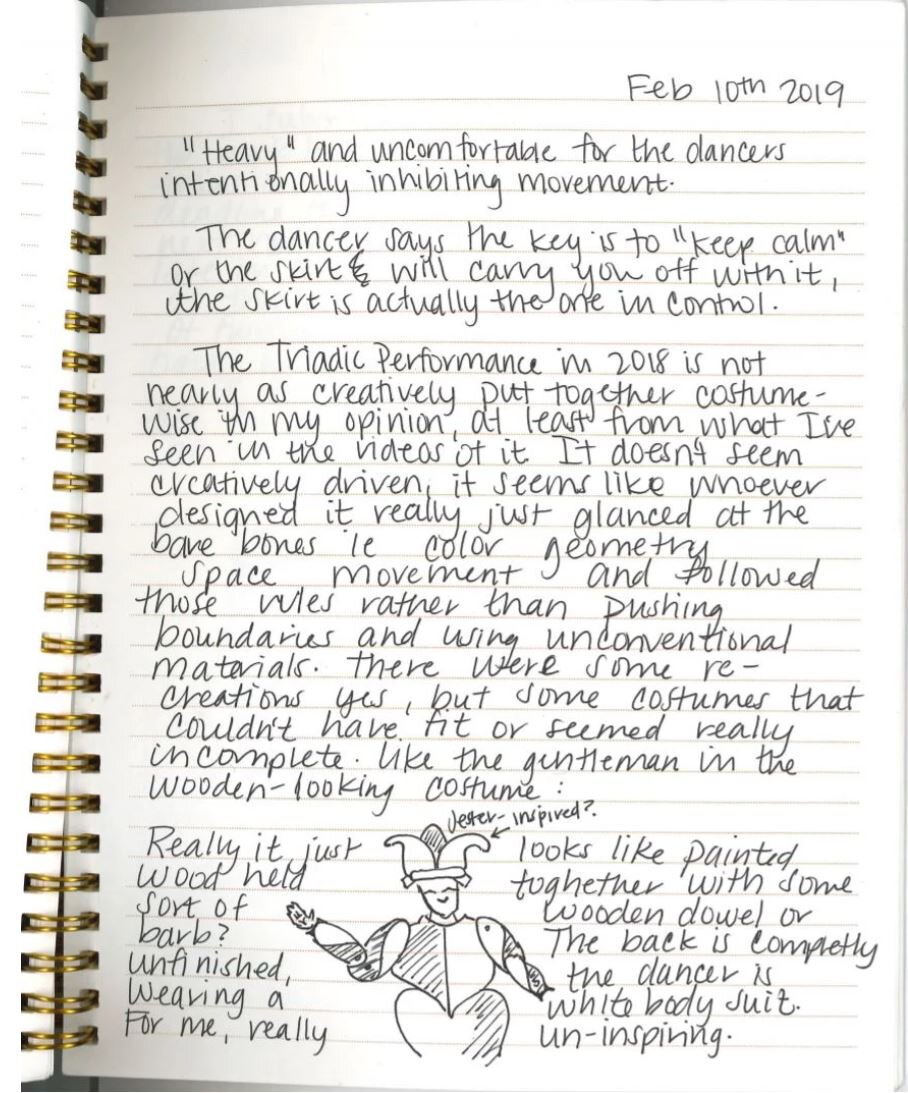 Feb 10th 2019
"Heavy" and uncomfortable for the dancers
intentionally inhibiting movement.
The dancer says the key is to "keep calm"
or the skirt & will carry you off with it,
the skirt is actually the one in control.
The Triadic Performance in 2018 is not
nearly as creatively put together costume-
wise in my opinion, at least from what I've
seen in the videos of it It doesn't seem
creatively driven, it seems like whoever
designed it really just glanced at the
bare bones ie color geometry
space movement and followed
those rules rather than pushing
boundaries and using unconventional
materials. there were some re-
creations yes, but some costumes that
couldn't have fit or seemed really
incomplete. like the gentleman in the
wooden-looking costume:
Jester-inspired?.
Really it just looks like painted
wood held toghether with some
sort of wooden dowel or
barb? The back is completly
unfinished, the dancer is
wearing a white body suit.
For me, really un-inspiring.